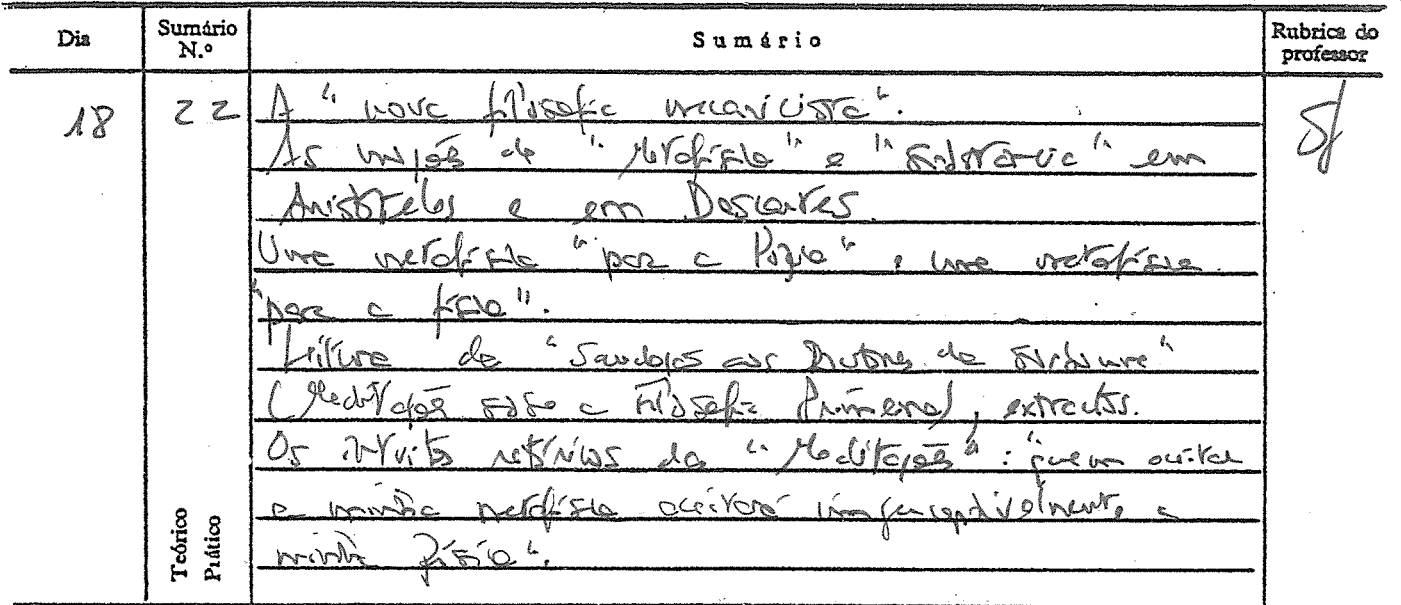 Dia
Sumário N.º
Sumário
Rubrica do professor
18
22
A "nova filosofia mecanicista".
As noções de "Metafísica" e "substância" em
Aristóteles e em Descartes.
Uma metafísica "para a Física", uma metafísica
"para a física".
Leitura de "Saudações aos Doutores da Sorbonne"
(Meditações sobre a Filosofia Primeira), extractos.
Os intuitos retóricos das "Meditações": "quem aceitar
a minha metafísica aceitará a
minha Física".
Teórico
Prático